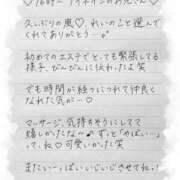 久しぶりの風♡、れいのこと選んで
くれてありがとう…
初めてのエステでとっても緊張してる
様子、びんびんに伝わったよ笑
でも時間が経つにつれて仲良く
なれた気が…♡
マッサージ、気持ちそうにしてて
嬉しかったな〜♪ ずっと「やばい…」
って、私♡可愛いかった笑
またいーっぱいいじいじさせてね♡!